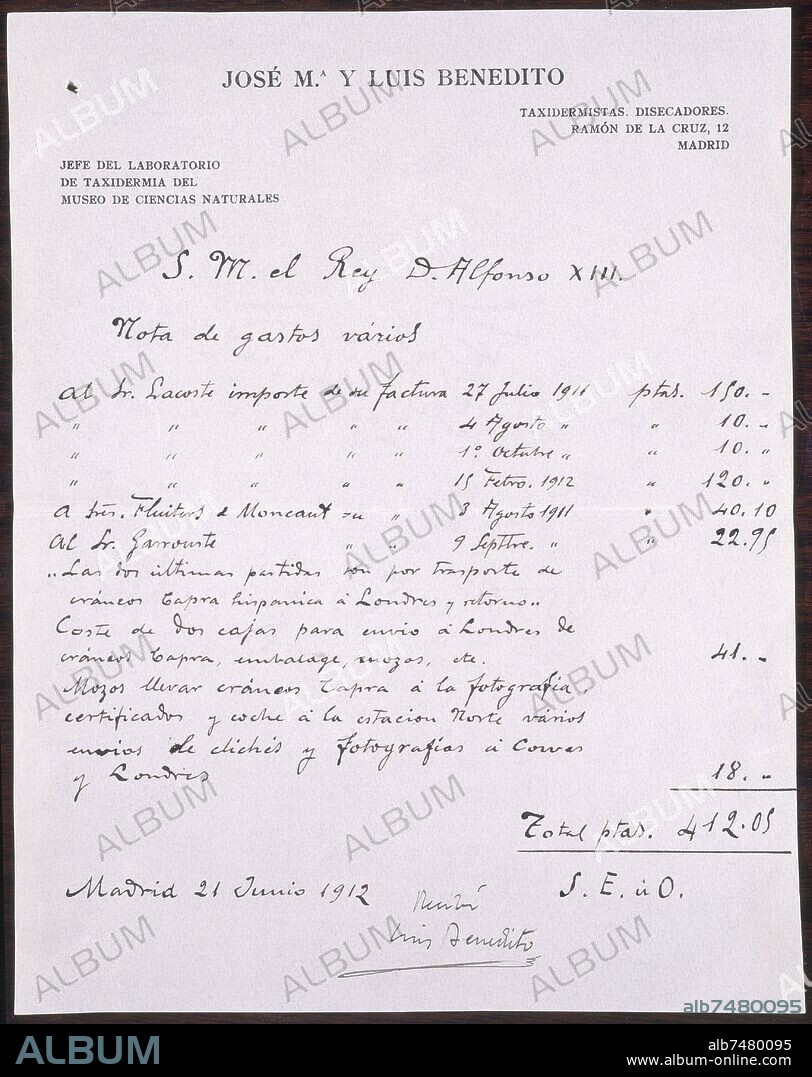 JOSÉ M.ª Y LUIS BENEDITO
TAXIDERMISTAS. DISECADORES.
RAMÓN DE LA CRUZ, 12
MADRID
JEFE DEL LABORATORIO
DE TAXIDERMIA DEL
MUSEO DE CIENCIAS NATURALES
S. M. el Rey D. Alfonso XIII.
Nota de gastos vários
Al Sr. Lacoste importe de su factura 27 Julio 1911 ptas. 150. „
„ „ „ „ „ 4 Agosto „ „ 10. „
„ „ „ „ „ 1º Octubre „ „ 10. „
„ „ „ „ „ 15 Febro. 1912 „ 120. „
A Sres. Fluiters & Moncaut su „ 3 Agosto 1911 „ 40.10
Al Sr. Garrouste „ „ 9 Septtre. „ „ 22.95
„Las dos últimas partidas son por trasporte de
cráneos Capra hispanica á Londres y retorno„.
Coste de dos cajas para envio á Londres de
cráneos Capra, embalage, mozos, etc. 41. „
Mozos llevar cráneos Capra á la fotografía,
certificados y coche á la estacion Norte vários
envios de clichés y fotografías á
y Londres 18. „
Total ptas. 412.05
Madrid 21 Junio 1912 Recibí S. E. ú O.
Luis Benedito
ALBUM
alb7480095
ALBUM
alb7480095
www.album-online.com